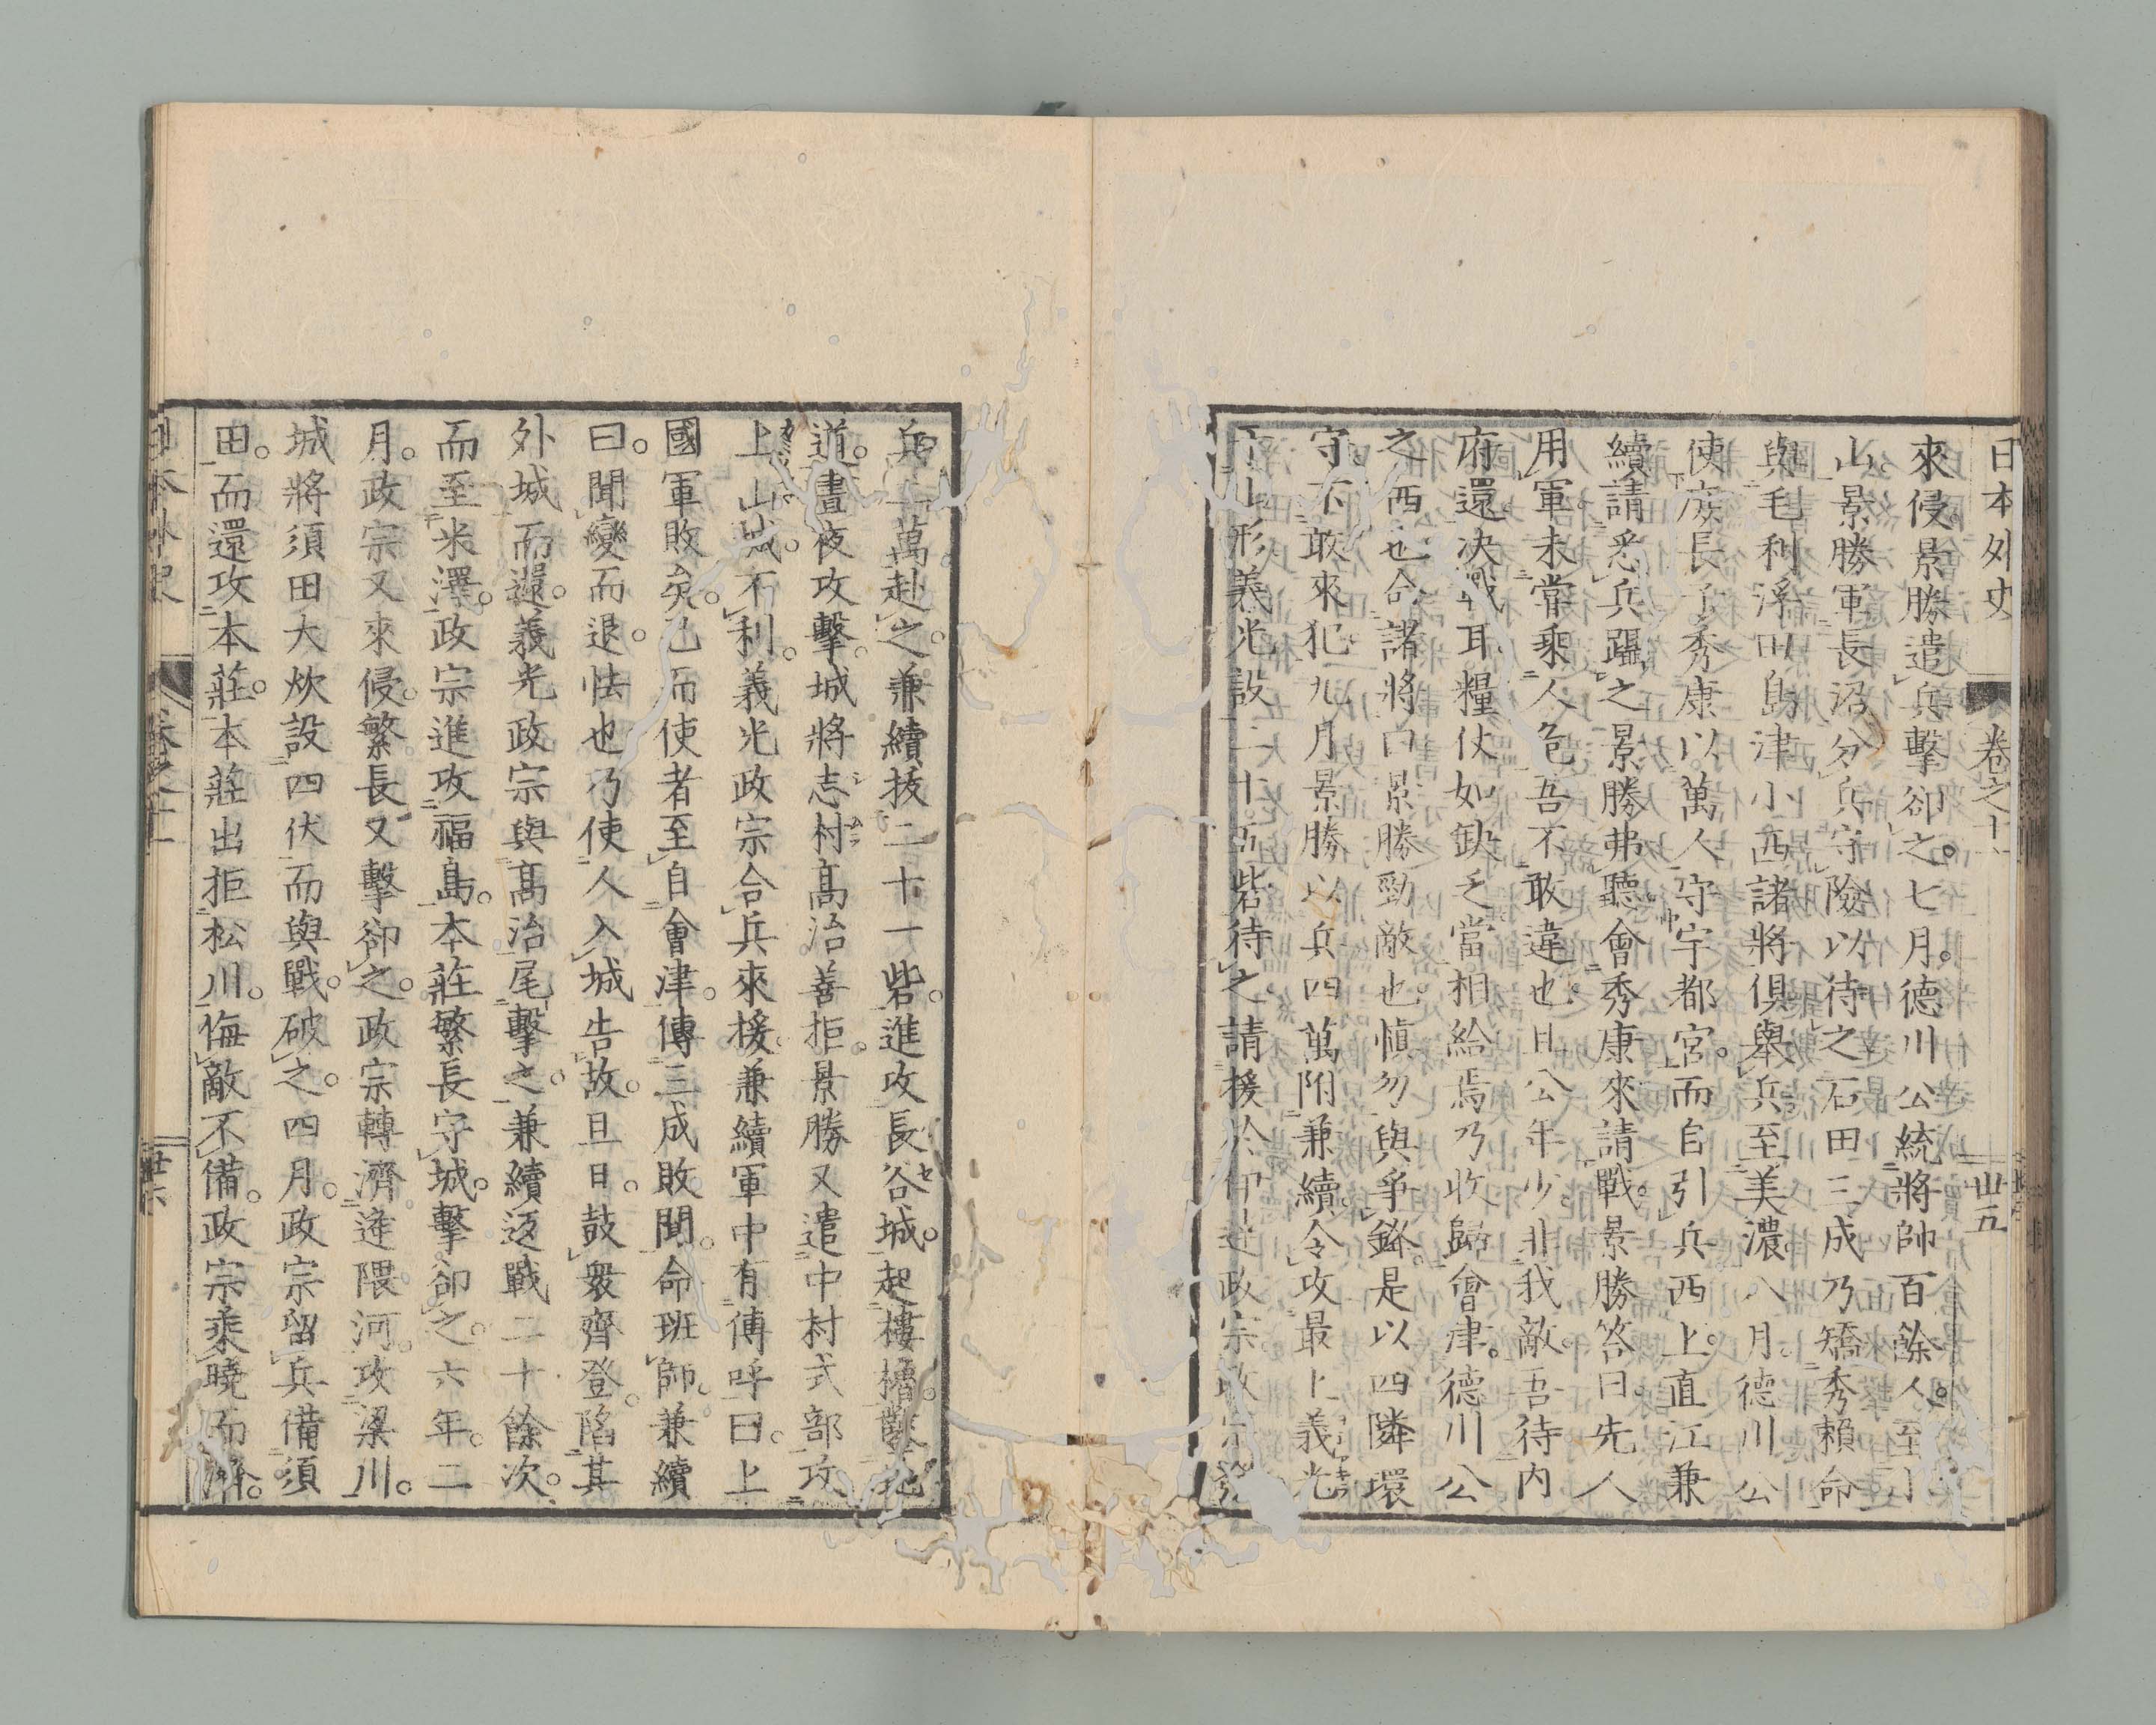 日本外史 卷之十一 卅五
來侵景勝遣兵擊卻之。七月。德川公統將帥百餘人。至小
山。景勝軍長沼分兵守險以待之石田三成乃矯秀賴命
與毛利浮田島津小西諸將俱舉兵至美濃。八月德川公
使庶長子秀康以萬人守宇都宮。而自引兵西上。直江兼
續請悉兵躡之景勝弗聽會秀康來請戰。景勝答曰。先人
用軍未嘗乘人危吾不敢違也。且公年少。非我敵。吾待內
府還決戰耳。糧仗如缺乏當相給焉乃收歸會津。德川公
之西也。令諸將曰景勝勁敵也愼勿與爭鋒。是以四隣環
守。不敢來犯九月景勝以兵四萬附兼續。令攻最上義光
于山形義光設二十五砦待之請援於伊達政宗政宗發
兵一萬赴之。兼續拔二十一砦。進攻長谷城。起樓櫓。鑿地
道。晝夜攻擊。城將志村高治善拒。景勝又遣中村式部攻
上山城。不利。義光政宗合兵來援。兼續軍中有傳呼曰。上
國軍敗矣。已而使者至自會津。傳三成敗聞。命班師。兼續
曰。聞變而退。怯也乃使人入城告故。旦日。鼓衆齊登。陷其
外城而還。義光政宗與高治尾擊之。兼續返戰二十餘次。
而至米澤。政宗進攻福島。本莊繁長守城。擊卻之。六年。二
月。政宗又來侵。繁長又擊卻之。政宗轉濟逢隈河。攻梁川。
城將須田大炊設四伏而與戰。破之。四月。政宗留兵備須
田。而還攻本莊。本莊出拒松川。侮敵不備。政宗乘曉而濟。
日本外史 卷之十一 卅六